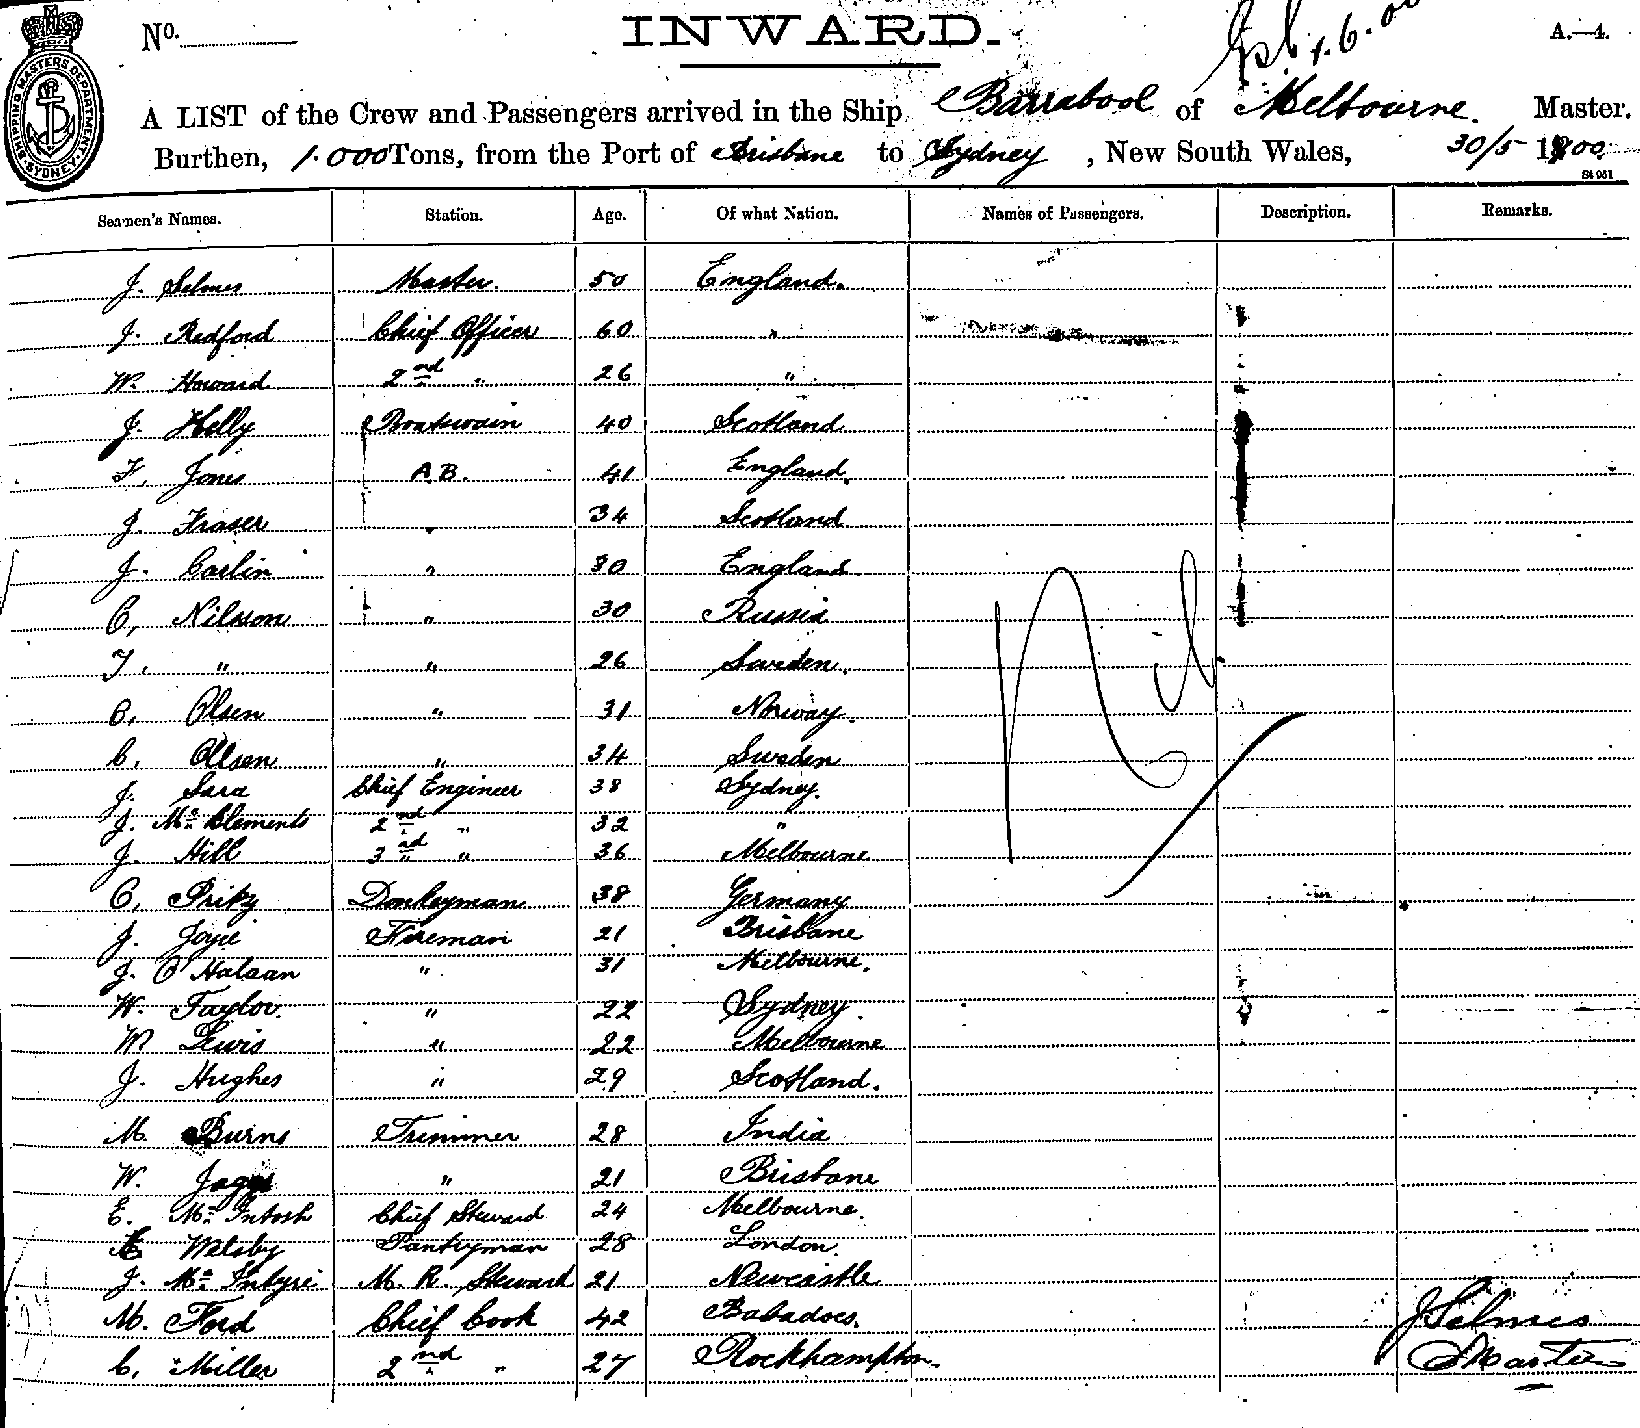 No.
INWARD.
1.6.00
A.—4.
SHIPPING MASTERS DEPARTMENT SYDNEY
A LIST of the Crew and Passengers arrived in the Ship Barrabool of Melbourne. Master.
Burthen, 1.000 Tons, from the Port of Brisbane to Sydney, New South Wales, 30/5 1900
St 951
Seamen's Names. Station. Age. Of what Nation. Names of Passengers. Description. Remarks.
J. Selmes Master. 50 England.
J. Redford Chief Officer 60 "
W. Howard 2nd " 26 "
J. Kelly Boatswain 40 Scotland
F. Jones A B. 41 England.
J. Fraser " 34 Scotland
J. Carlin " 30 England
C, Nilsson " 30 Russia
T, " " 26 Sweden.
C, Olsen " 31 Norway.
C, Ollsen " 34 Sweden
J. Sara Chief Engineer 38 Sydney.
J. Mc Clements 2nd " 32 "
J. Hill 3rd " 36 Melbourne
Nil
C, Priky Donkeyman 38 Germany
J. Joyce Fireman 21 Brisbane
J. O Halaan " 31 Melbourne.
W. Taylor. " 22 Sydney.
W Lewis " 22 Melbourne
J. Hughes " 29 Scotland.
M. Burns Trimmer 28 India
W. " 21 Brisbane
E. Mc Intosh Chief Steward 24 Melbourne.
E Walsby Pantryman 28 London.
J. Mc Intyre M. R. Steward 21 Newcastle
M. Ford Chief Cook 42 Babadoes.
C, Miller 2nd " 27 Rockhampton.
J Selmes
Master